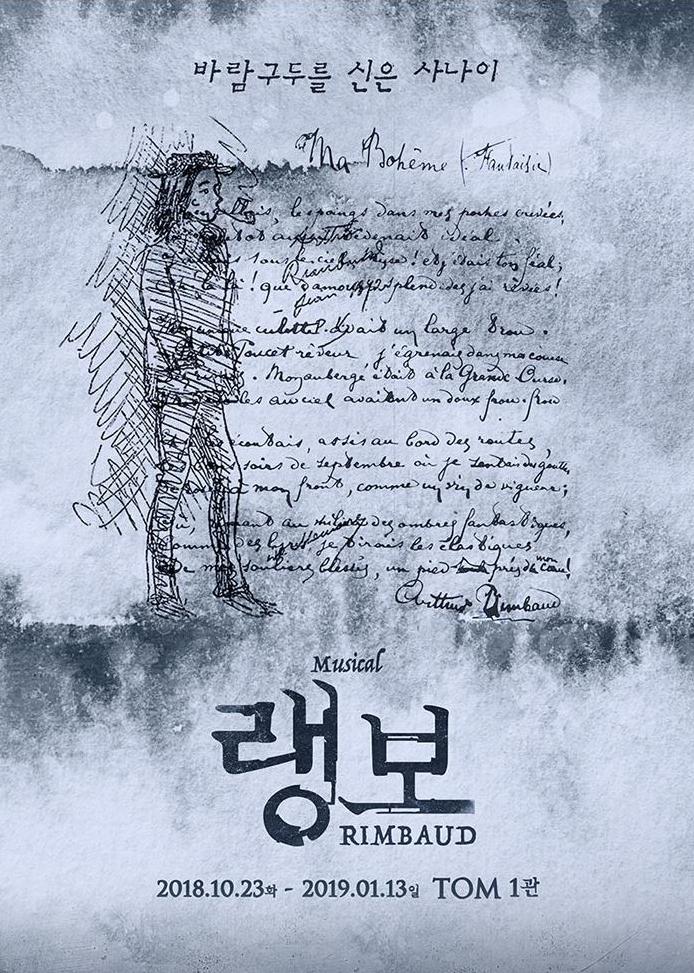 바람구두를 신은 사나이
Ma Bohême (Fantaisie)
les poings dans mes poches crevées,
devenait idéal
sous le ciel, Muse! et j'étais ton féal;
là! que d'amours splendides j'ai rêvées!
unique culotte avait un large trou.
Petit Poucet rêveur j'égrenais dans ma course
. Mon auberge était à la Grande Ourse.
au ciel avaient un doux frou-frou
écoutais, assis au bord des routes,
soirs de septembre où je sentais des gouttes
mon front, comme un vin de vigueur;
rimant au milieu des ombres fantastiques,
je tirais les élastiques
De mes souliers blessés, un pied près de mon cœur!
Arthur Rimbaud
Musical
랭보
RIMBAUD
2018.10.23화 - 2019.01.13일 TOM 1관